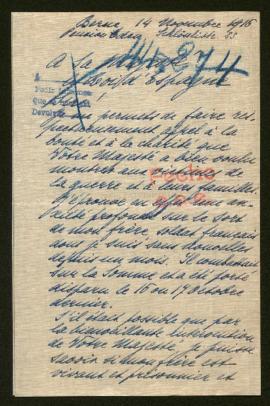 Berne, 14 Novembre 1916
Pension Eden
A Sa Majesté
Le Roi d'Espagne
Je me permets de faire res-
pectueusement appel à la
bonté et à la charité que
Votre Majesté a bien voulu
montrer aux victimes de
la guerre et à leurs familles.
J'éprouve en effet une an-
xiété profonde sur le sort
de mon frère, soldat français
dont je suis sans nouvelles
depuis un mois. Il combattait
sur la Somme et a été porté
disparu le 16 ou 17 octobre
dernier.
S'il était possible que par
la bienveillante intervention
de Votre Majesté, je puisse
savoir si mon frère est
vivant et prisonnier et